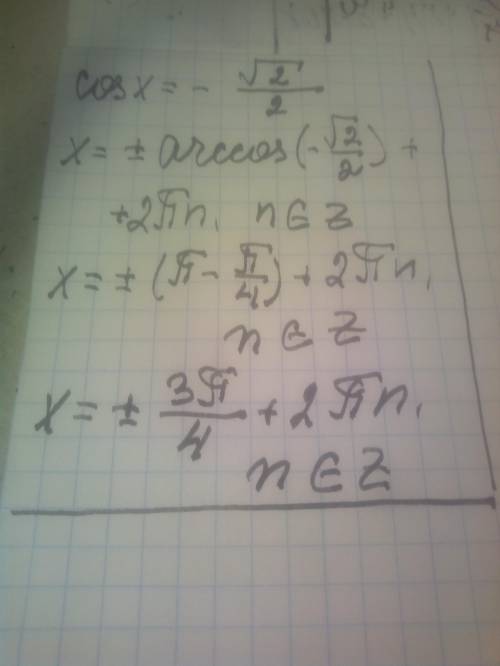 cos x = - √2/2
x = ± arccos(-√2/2) +
+2πn, n ∈ Z
x = ± (π - π/4) + 2πn,
n ∈ Z
x = ± 3π/4 + 2πn,
n ∈ Z